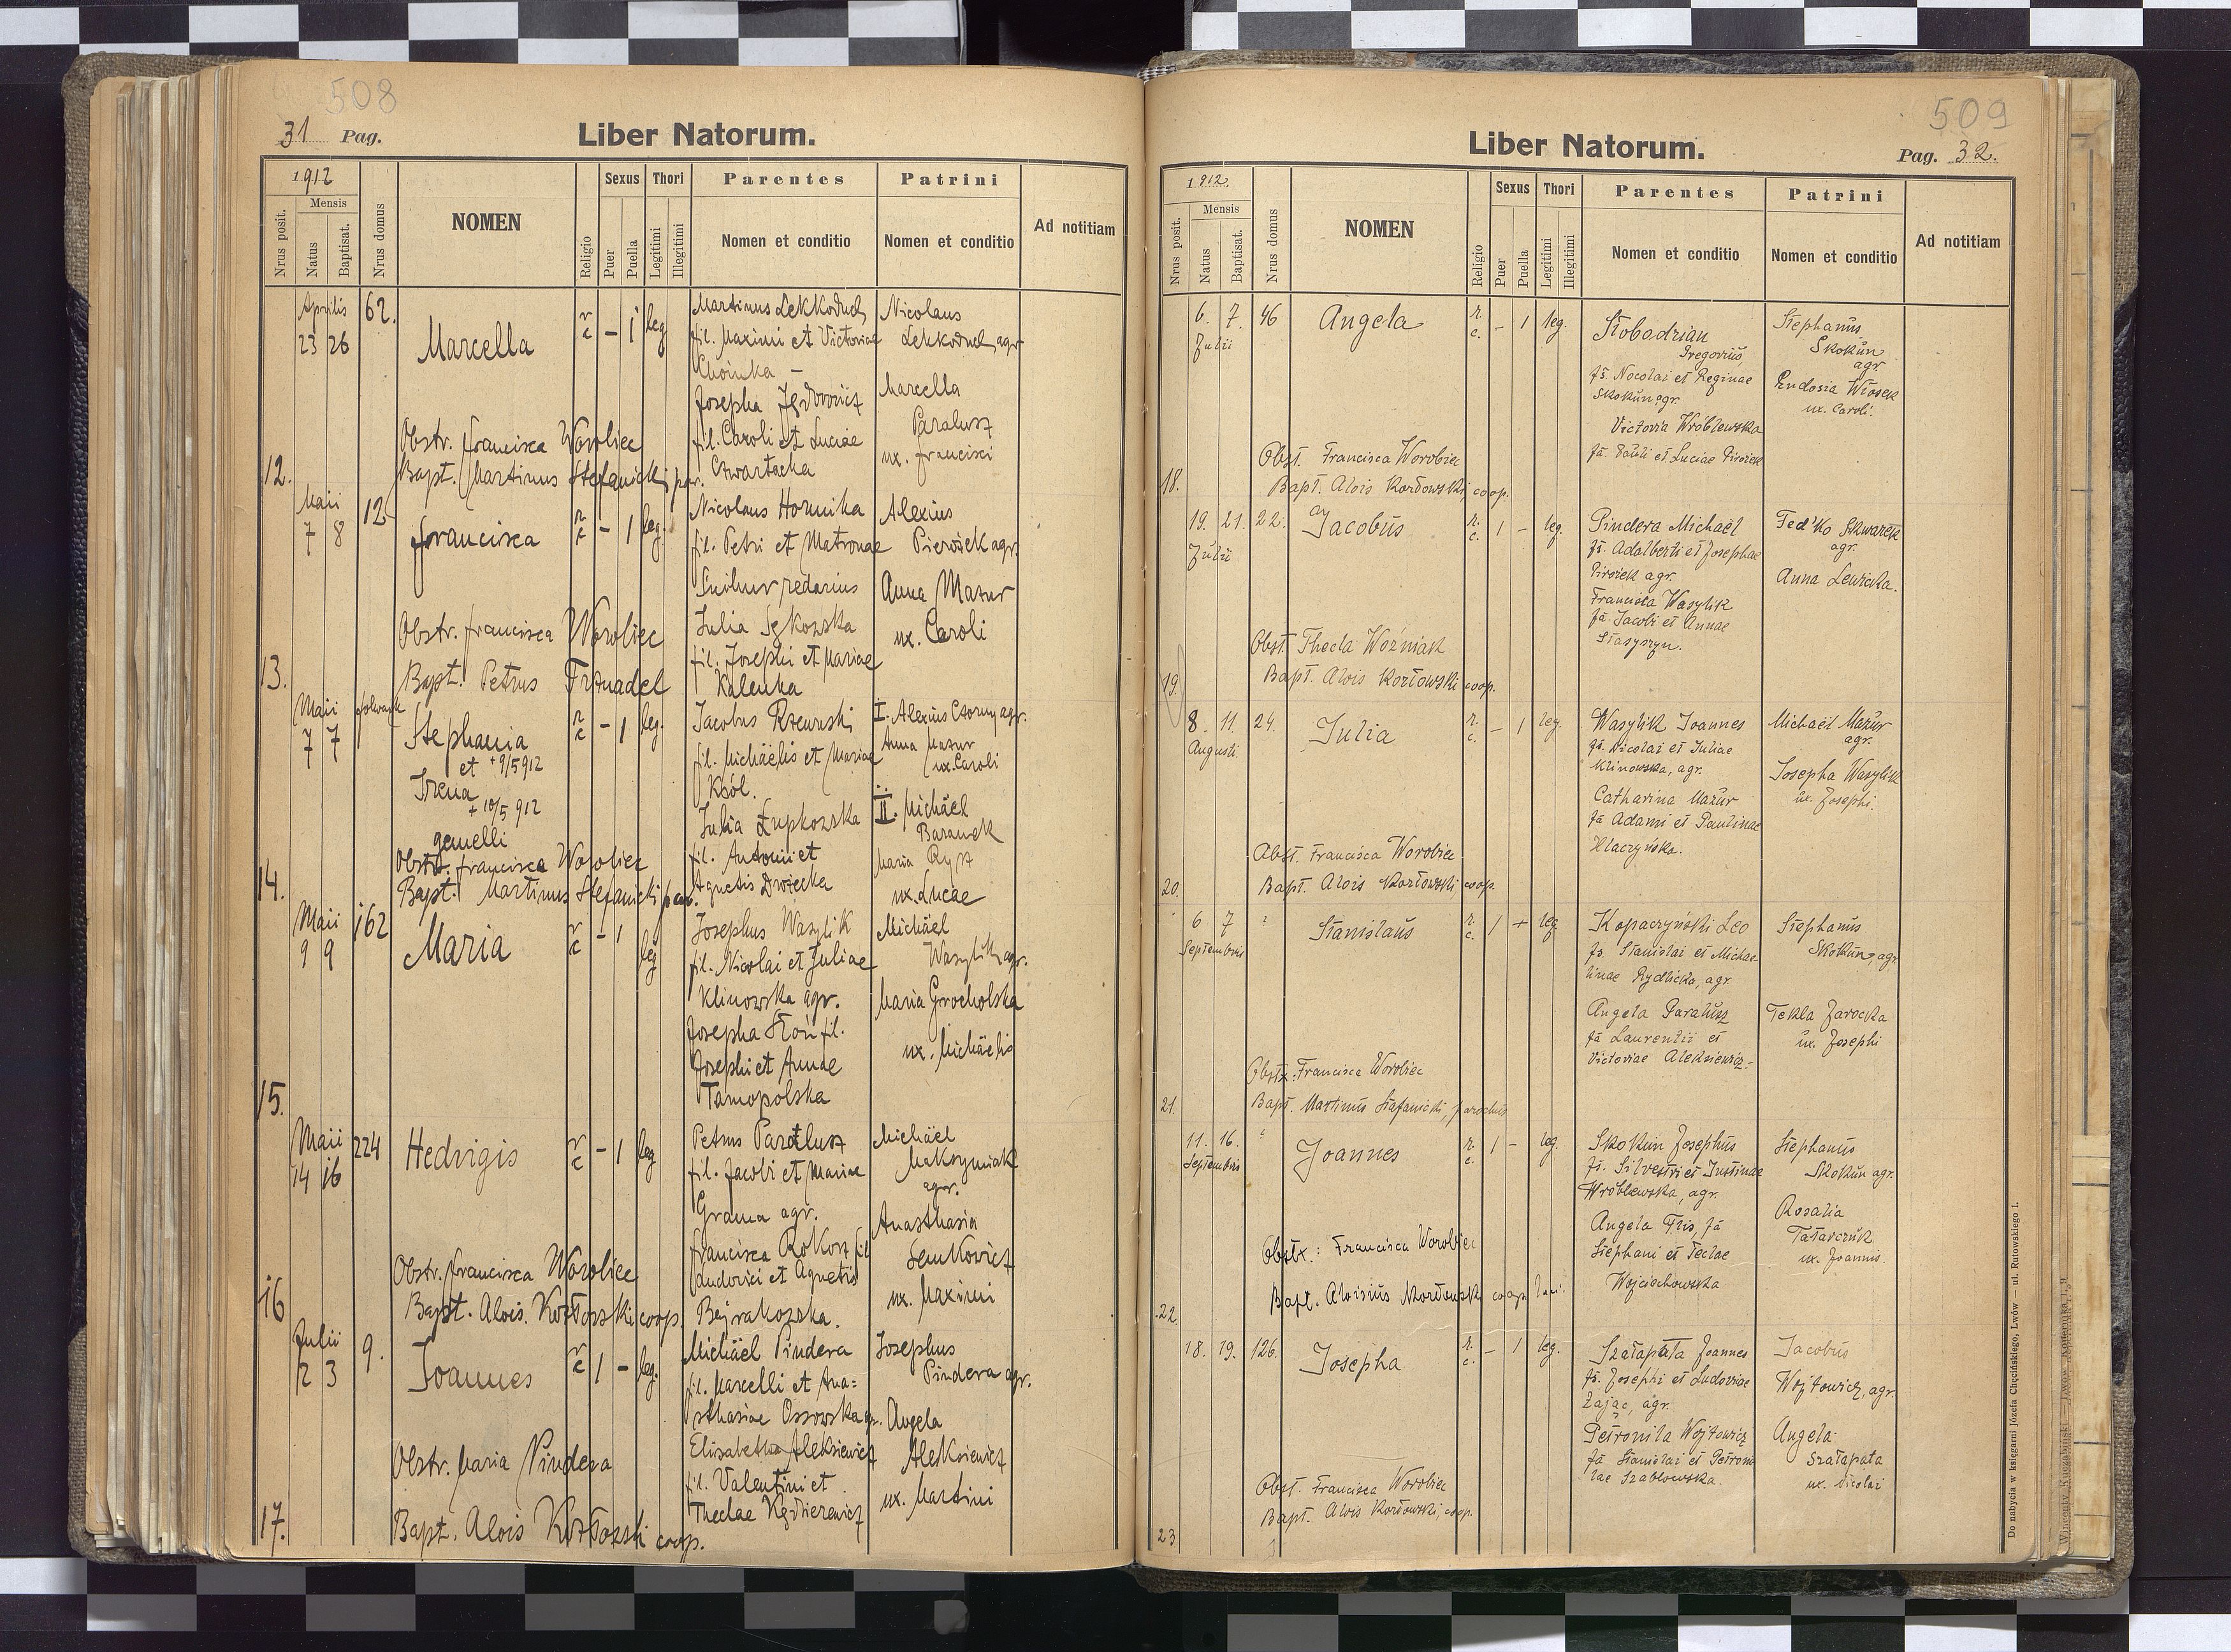 508
31 Pag.
Liber Natorum.
1912
Mensis
Nrus posit.
Natus
Baptisat.
Nrus domus
NOMEN
Religio
Sexus
Puer
Puella
Thori
Legitimi
Illegitimi
Parentes
Nomen et conditio
Patrini
Nomen et conditio
Ad notitiam
Aprilis
23 26
62.
Marcella
r c - 1 leg
Martinus
fil. Maximi et Victoriae
Choinka -
Josepha
fil. Caroli et Luciae
Czwartacka
Nicolaus
agr.
Marcella
Paralusz
ux. Francisci
Obstr. Francisca Worobiec
Bapt. Martinus Stefanicki par.
12.
Maii
7 8
12
Francisca
r c - 1 leg.
Nicolaus Hornika
fil. Petri et Matronae
redarius
Julia
fil. Josephi et Mariae
Kalenka
Alexius
Pierożek agr.
Anna Mazur
ux. Caroli
Obstr. Francisca Worobiec
Bapt. Petrus
13.
Maii
7 7
folwark
Stephania
et + 9/5 912
Irena
+ 10/5 912
gemelli
r c - 1 leg.
Jacobus Rzewuski
fil. Michäelis et Mariae
Król.
Julia Łupkowska
fil. Antonii et
Agnetis
I. Alexius Czorny agr.
Anna Mazur
ux. Caroli
II. Michäel
Baranek
Maria
ux. Lucae
Obstr. Francisca Worobiec
Bapt. Martinus Stefanicki par.
14.
Maii
9 9
162
Maria
r c - 1 leg
Josephus Wasylik
fil. Nicolai et Juliae
Klinowska agr.
Josepha Słoń fil.
Josephi et Annae
Tarnopolska
Michäel
Wasylik agr.
Maria Grocholska
ux. Michäelis
15.
Maii
14 16
224
Hedvigis
r c - 1 leg
Petrus Paralusz
fil. Jacobi et Mariae
agr.
Francisca Rokosz fil
Ludovici et Agnetis
Michäel
Maksymiak
agr.
Anasthasia
Senkowicz
ux. Maximi
Obstr. Francisca Worobiec
Bapt. Alois. Kozłowski coop.
16
Julii
2 3
9.
Joannes
r c 1 - leg.
Michäel Pindera
fil. Marcelli et Ana=
sthasiae Ossowska
Elisabetha Aleksiewicz
fil. Valentini et
Theclae
Josephus
Pindera agr.
Angela
Aleksiewicz
ux. Martini
Obstr. Maria Pindera
Bapt. Alois Kozłowski coop.
17.
509
Liber Natorum.
Pag. 32.
1912.
Mensis
Nrus posit.
Natus
Baptisat.
Nrus domus
NOMEN
Religio
Sexus
Puer
Puella
Thori
Legitimi
Illegitimi
Parentes
Nomen et conditio
Patrini
Nomen et conditio
Ad notitiam
6. 7. 46
Julii
Angela
r. c. - 1 leg.
Słobodzian
Gregorius
fs. Nocolai et Reginae
Skokun agr.
Victoria Wróblewska
fa. Pauli et Luciae
Stephanus
Skokun
agr.
Eudosia Włosek
ux. Caroli.
Obst. Francisca Worobiec
Bapt. Alois Kozłowski, coop.
18.
19. 21. 22.
Julii
Jacobus
r. c. 1 - leg.
Pindera Michael
fs. Adalberti et Josephae
agr.
Francisca Wasylik
fa. Jacobi et Annae
Stasyszyn.
Fed'ko Skwarek
agr.
Anna Lewicka.
Obst. Thecla Woźniak
Bapt. Alois Kozłowski coop.
19.
8. 11. 24.
Augusti.
Julia
r. c. - 1 leg.
Wasylik Joannes
fs. Nicolai et Juliae
Klinowska, agr.
Catharina Mazur
fa Adami et Paulinae
Hlaczyńska.
Michael Mazur
agr.
Josepha Wasylik
ux. Josephi.
Obst. Francisca Worobiec
Bapt. Alois Kozłowski, coop.
20.
6 7 ?
Septembris
Stanislaus
r. c. 1 + leg
Kopaczyński Leo
fs. Stanislai et Michae
linae Rydlicka, agr.
Angela Paralusz
fa Laurentii et
Victoriae Aleksiewicz.
Stephanus
Skokun, agr.
Tekla Zarocka
ux. Josephi
Obstx: Francisca Worobiec
Bapt. Martinus Stafanicki, parochus
21.
11. 16. ?
Septembris
Joannes
r. c. 1 - leg.
Skokun Josephus
fs. Silvestri et Justinae
Wróblewska, agr.
Angela Fris, fa
Stephani et Teclae
Wojciechowska
Stephanus
Skokun agr.
Rosalia
Tatarczuk
ux. Joannis.
Obstx: Francisca Worobiec
Bapt. Aloisius Kozłowski coop.
22.
18. 19. 126.
Josepha
r. c. - 1 leg.
Szałapata Joannes
fs. Josephi et Ludoviae
Zając, agr.
Petronila Wojtowicz
fa Stanislai et Petroni
lae Szabłowska.
Jacobus
Wojtowicz, agr.
Angela
Szałapata
ux. Nicolai
Obst. Francisca Worobiec
Bapt. Alois Kozłowski, coop.
23
Do nabycia w księgarni Józefa Chęcińskiego, Lwów — ul. Rutowskiego 1.